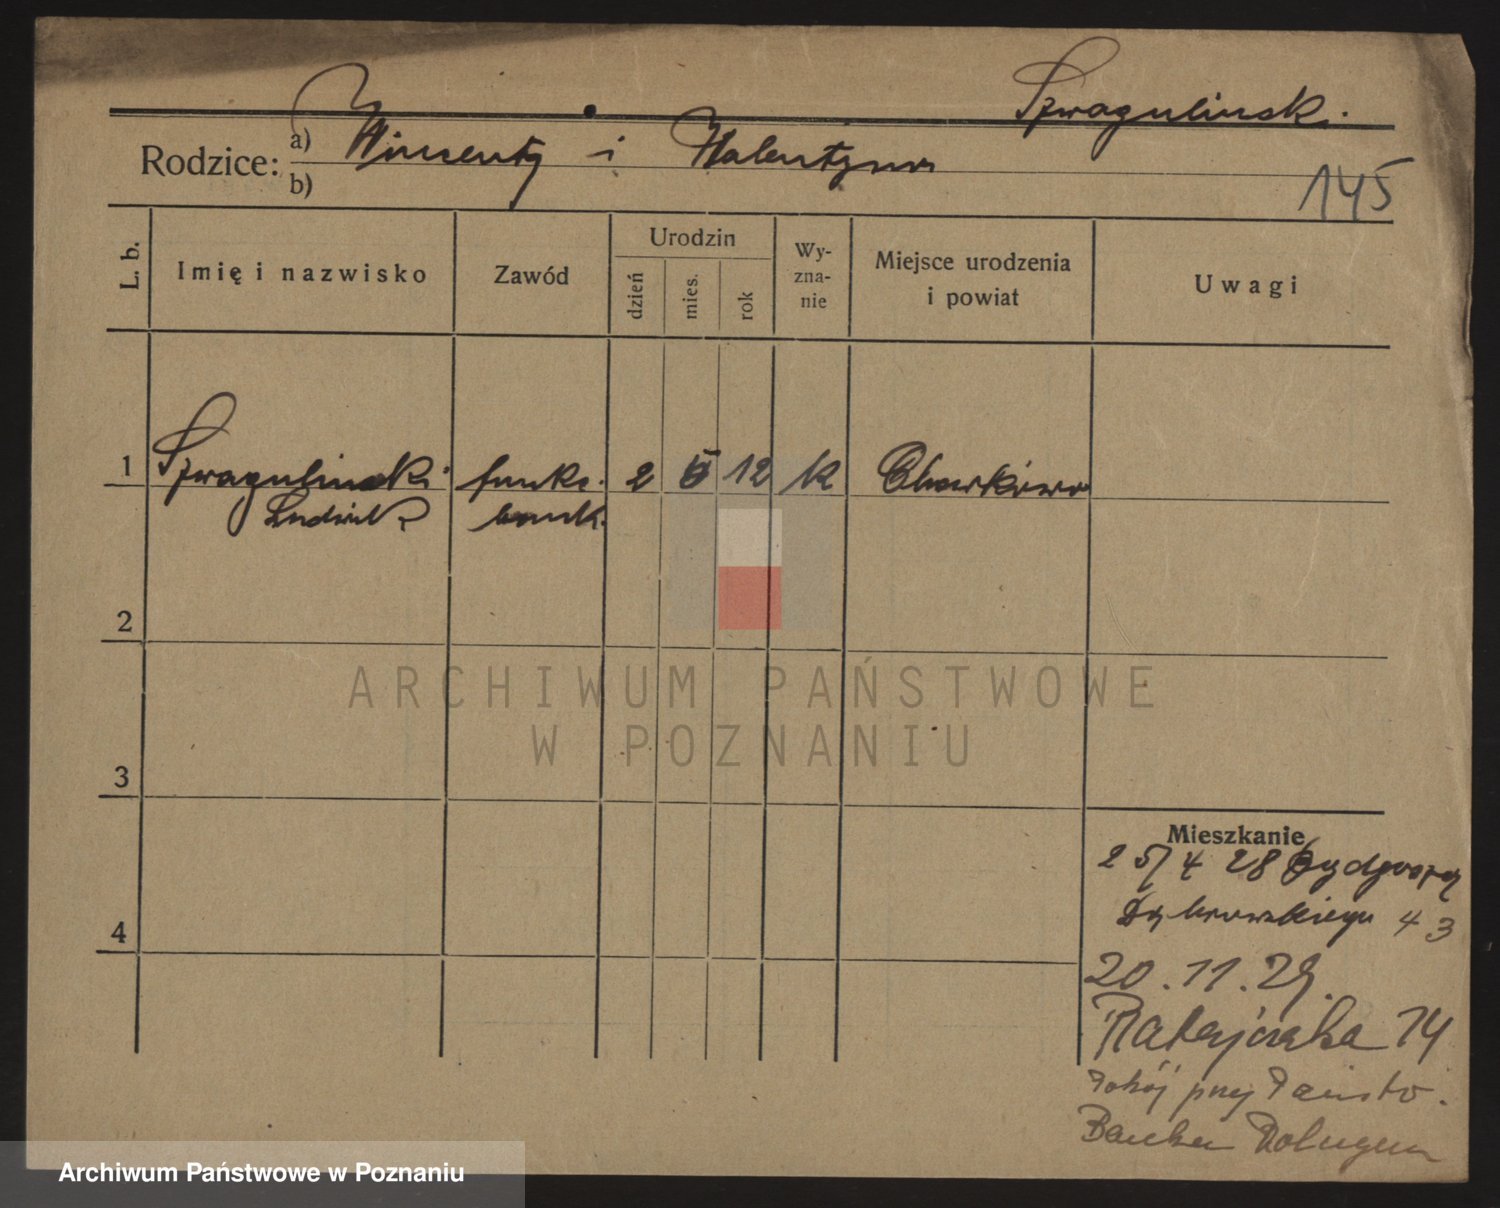 Szwagulinski.
Rodzice:
a) Wincenty i Walentyna
b)
145
L. b.
Imię i nazwisko
Zawód
Urodzin
dzień
mies.
rok
Wy-
zna-
nie
Miejsce urodzenia
i powiat
Uwagi
1 Szwagulinski funkc. 2 12 k
Ludwik bank.
2
ARCHIWUM PAŃSTWOWE
W POZNANIU
3
Mieszkanie
25/4 28 Bydgoszcz
Dąbrowskiego 43
4
20.11.29.
Ratajczaka 14
Pokój przy Państw.
Banku Rolnym
Archiwum Państwowe w Poznaniu